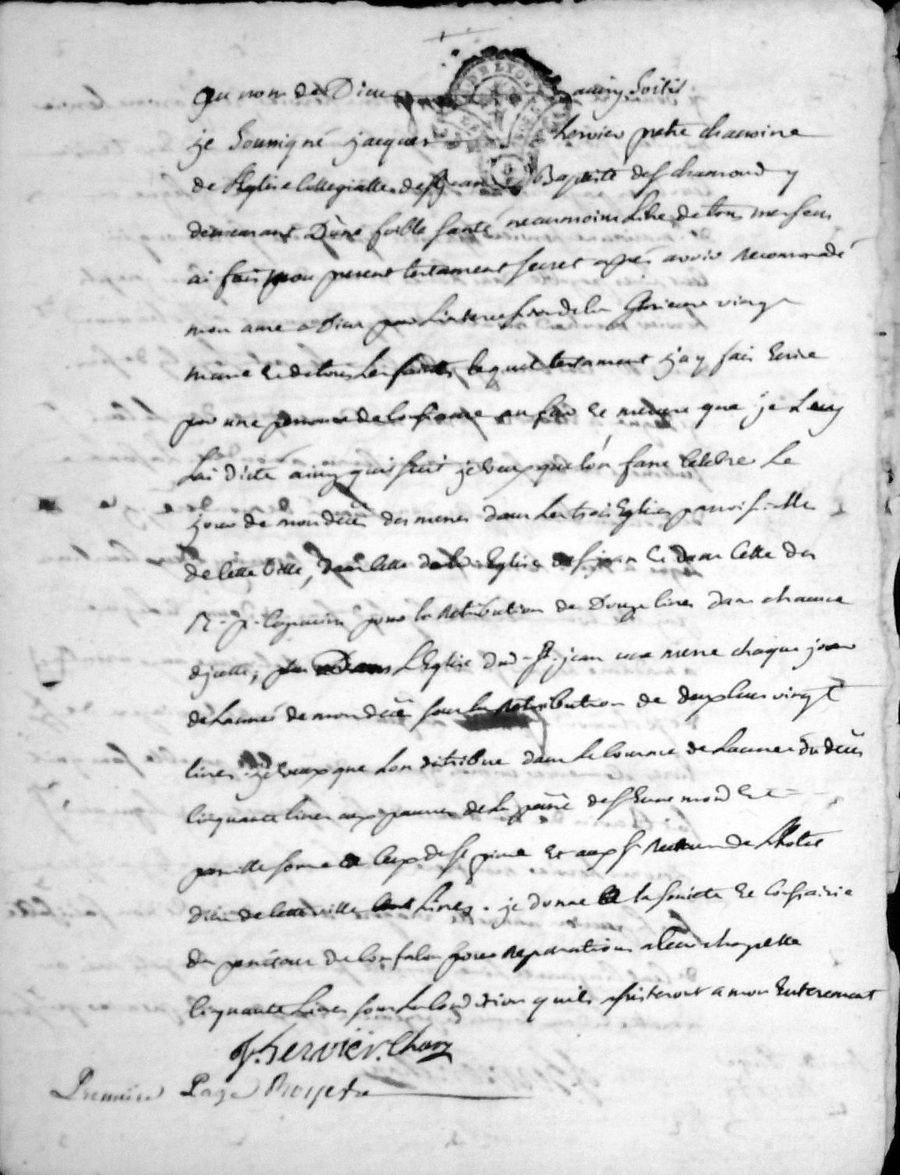 Au nom de Dieu ainsy soit il
je soussigné jacques hervier pretre chanoine
de l'Eglise Collegialle de St jean Baptiste de St chamond y
demeurant D'une foible santé neanmoins libre de tous mes sens
ai fait mon present testament secret apres avoir recommandé
mon ame a Dieu par l'intercession de la Glorieuse vierge
marie et de tous les saints, lequel testament j'ay fait Ecrire
par une personne de confiance au fur et mesure que je Luy
L'ai dicté ainsy qui suit je veux que lon fasse celebre Le
jour de mon décès des messes dans les trois Eglises paroissialle
de cette ville, dans celle de lad. Eglise de St jean et dans celle des
R. P. Capucins pour la retribution de Douze livres dans chacune
d'jcelle, plus Dans L'Eglise dud. St. jean une messe chaque jour
de L'année de mon décès sous la retribution de deux cens vingt
livres je veux que Lon distribue dans le courant de L'année du décès
cinquante livres aux pauvres de la parroisse de St Enemond Et
pareille somme a ceux de St pierre Et aux Srs Recteurs de L'hotel
dieu de cette ville cent Livres. je donne a la societé et Confrairie
du penitens de Confalon pour reparations a leur chapelle
cinquante Livres sous la condition qu'ils assisteront a mon Enterement
J. hervier. Chan
Premiere Page